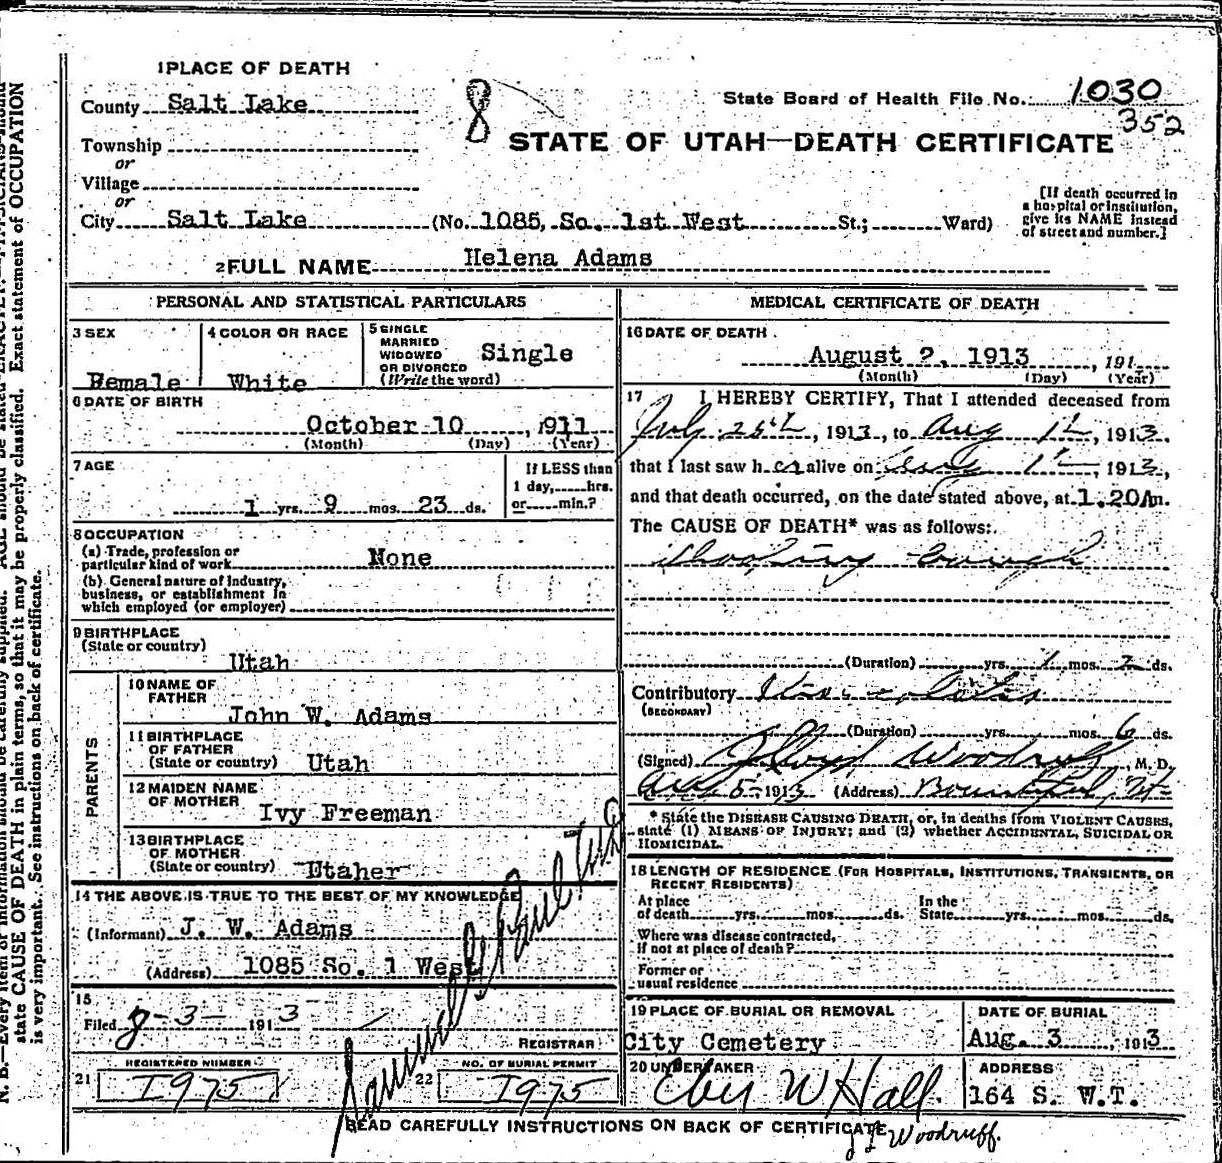 1 PLACE OF DEATH
County Salt Lake
8
State Board of Health File No. 1030
352
Township
or
Village
or
City Salt Lake (No. 1085, So. 1st West St.; Ward)
STATE OF UTAH—DEATH CERTIFICATE
[If death occurred in
a hospital or institution,
give its NAME instead
of street and number.]
2 FULL NAME Helena Adams
PERSONAL AND STATISTICAL PARTICULARS
3 SEX
Female
4 COLOR OR RACE
White
5 SINGLE
MARRIED
WIDOWED
OR DIVORCED
(Write the word)
Single
6 DATE OF BIRTH
October 10, 1911
(Month) (Day) (Year)
7 AGE
1 yrs. 9 mos. 23 ds.
If LESS than
1 day, hrs.
or min.?
8 OCCUPATION
(a) Trade, profession or
particular kind of work None
(b) General nature of industry,
business, or establishment in
which employed (or employer)
9 BIRTHPLACE
(State or country)
Utah
PARENTS
10 NAME OF
FATHER
John W. Adams
11 BIRTHPLACE
OF FATHER
(State or country) Utah
12 MAIDEN NAME
OF MOTHER
Ivy Freeman
13 BIRTHPLACE
OF MOTHER
(State or country) Utaher
14 THE ABOVE IS TRUE TO THE BEST OF MY KNOWLEDGE
(Informant) J. W. Adams
(Address) 1085 So. 1 West
15
Filed 8-3- 1913
REGISTRAR
Samuel G Paul
REGISTERED NUMBER
21 1975
NO. OF BURIAL PERMIT
22 1975
MEDICAL CERTIFICATE OF DEATH
16 DATE OF DEATH
August 2, 1913, 191
(Month) (Day) (Year)
17 I HEREBY CERTIFY, That I attended deceased from
July 25th, 1913, to Aug 1st, 1913,
that I last saw her alive on Aug 1st, 1913,
and that death occurred, on the date stated above, at 1.20Am.
The CAUSE OF DEATH* was as follows:
Whooping Cough
(Duration) yrs. 1 mos. 2 ds.
Contributory
(SECONDARY)
(Duration) yrs. mos. 6 ds.
(Signed) Woodruff, M. D.
Aug 5-1913 (Address) Bountiful, Ut
* State the DISEASE CAUSING DEATH, or, in deaths from VIOLENT CAUSES,
state (1) MEANS OF INJURY; and (2) whether ACCIDENTAL, SUICIDAL OR
HOMICIDAL.
18 LENGTH OF RESIDENCE (FOR HOSPITALS, INSTITUTIONS, TRANSIENTS, OR
RECENT RESIDENTS)
At place
of death yrs. mos. ds.
In the
State yrs. mos. ds.
Where was disease contracted,
if not at place of death?
Former or
usual residence
19 PLACE OF BURIAL OR REMOVAL
City Cemetery
DATE OF BURIAL
Aug. 3, 1913
20 UNDERTAKER
Eber W Hall
ADDRESS
164 S. W.T.
READ CAREFULLY INSTRUCTIONS ON BACK OF CERTIFICATE
Woodruff.
N. B.—Every item of information should be carefully supplied. AGE should be stated EXACTLY. PHYSICIANS should
state CAUSE OF DEATH in plain terms, so that it may be properly classified. Exact statement of OCCUPATION
is very important. See instructions on back of certificate.